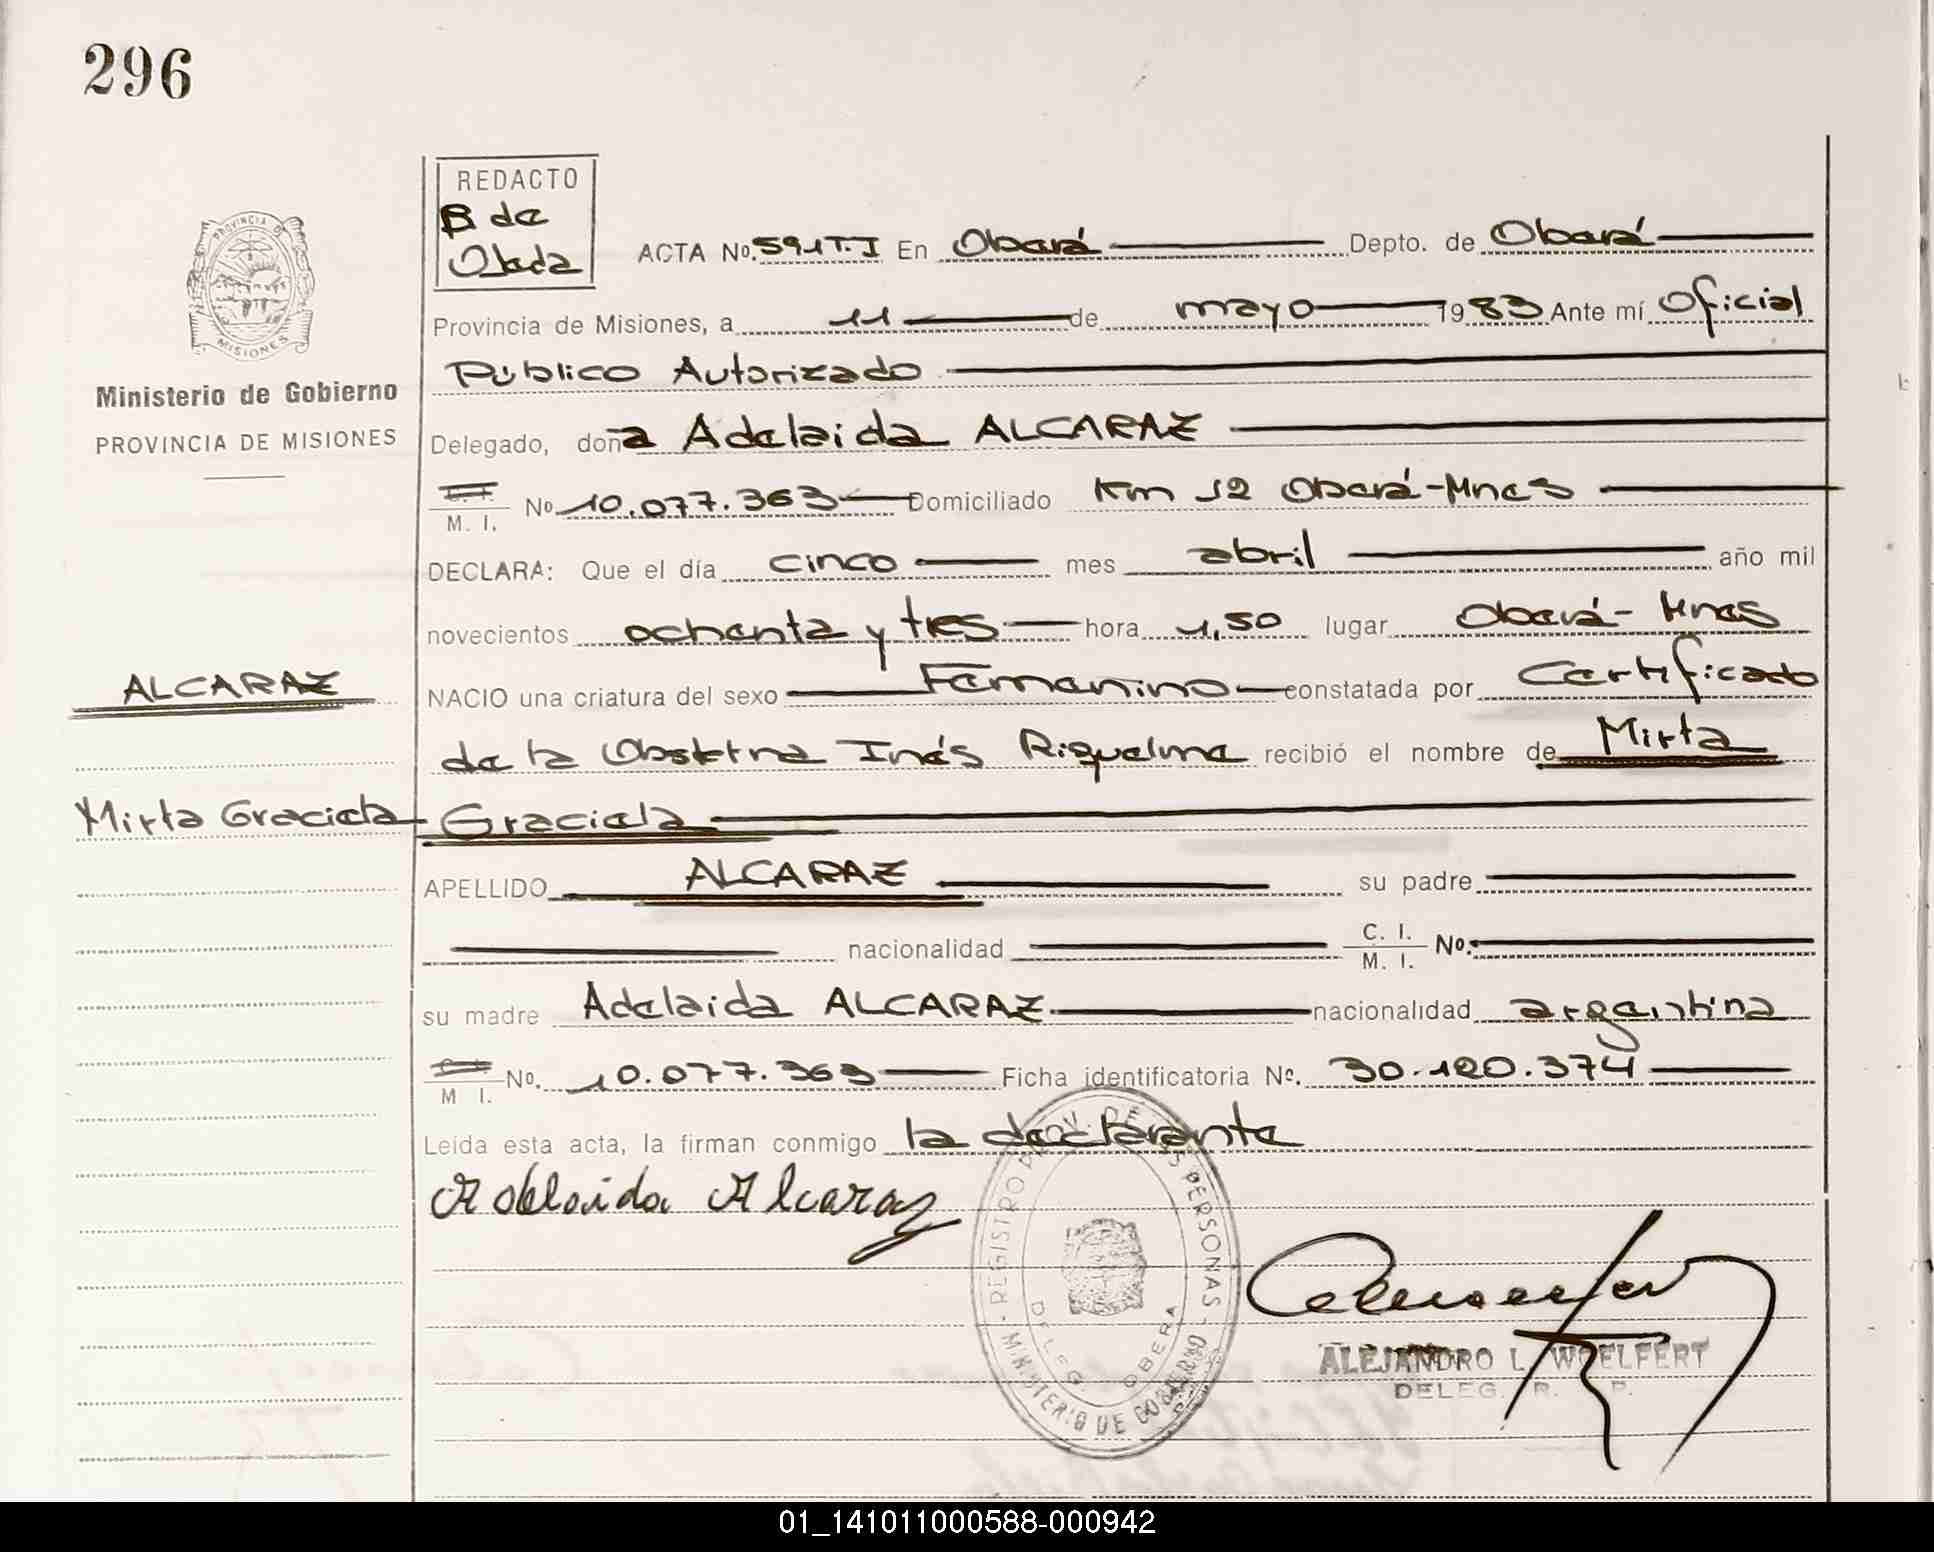 296
REDACTO
B de
Ojeda
ACTA No. 591 T.I En Oberá Depto. de Oberá
Provincia de Misiones, a 11 de mayo 1983 Ante mí Oficial
Público Autorizado
PROVINCIA DE
MISIONES
Ministerio de Gobierno
PROVINCIA DE MISIONES
Delegado, doña Adelaida ALCARAZ
C. I.
M. I. No 10.077.363 Domiciliado Km 12 Oberá-Mnes
DECLARA: Que el día cinco mes abril año mil
novecientos ochenta y tres hora 1,50 lugar Oberá- Mnes
ALCARAZ
NACIO una criatura del sexo Femenino constatada por Certificado
de la Obstetra Inés Riquelme recibió el nombre de Mirta
Mirta Graciela
Graciela
APELLIDO ALCARAZ su padre
nacionalidad C. I.
M. I. No.
su madre Adelaida ALCARAZ nacionalidad argentina
C. I.
M I. No. 10.077.363 Ficha identificatoria Nº. 30.120.374
Leida esta acta, la firman conmigo la declarante
Adelaida Alcaraz
REGISTRO PROV. DE LAS PERSONAS
DELEG. OBERA
MINISTERIO DE GOBIERNO
ALEJANDRO L. WOELFERT
DELEG. R. P.
01_141011000588-000942